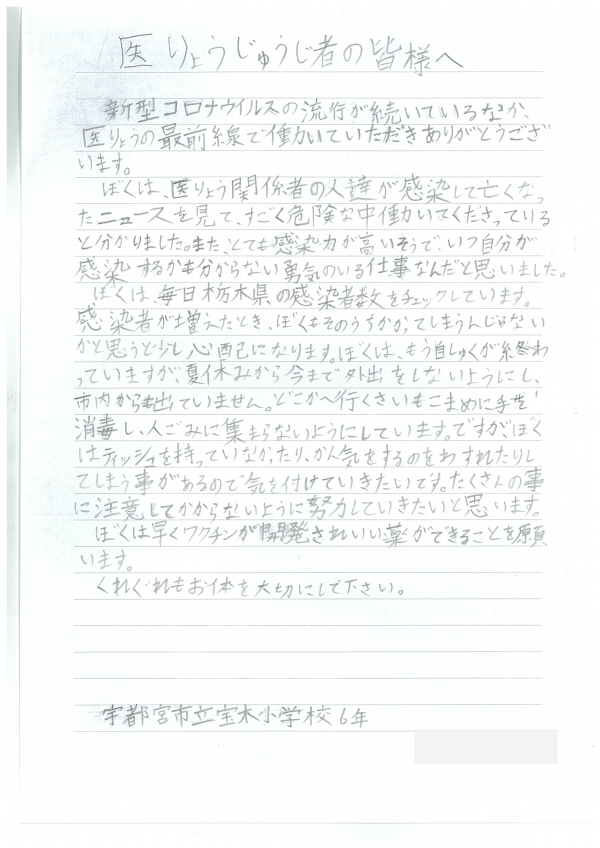 医りょうじゅうじ者の皆様へ
新型コロナウイルスの流行が続いているなか、
医りょうの最前線で働いていただきありがとうござ
います。
ぼくは、医りょう関係者の人達が感染して亡くなっ
たニュースを見て、すごく危険な中働いてくださっている
と分かりました。また、とても感染力が高いそうで、いつ自分が
感染するかも分からない勇気のいる仕事なんだと思いました。
ぼくは、毎日栃木県の感染者数をチェックしています。
感染者が増えたとき、ぼくもそのうちかかってしまうんじゃない
かと思うと少し心配になります。ぼくは、もう自しゅくが終わ
っていますが、夏休みから今まで外出をしないようにし、
市内からも出ていません。どこかへ行くさいもこまめに手を
消毒し、人ごみに集まらないようにしています。ですが、ぼく
はティッシュを持っていなかったり、かん気をするのをわすれたりし
てしまう事があるので気を付けていきたいです。たくさんの事
に注意してかからないように努力していきたいと思います。
ぼくは早くワクチンが開発されいい薬ができることを願
います。
くれぐれもお体を大切にして下さい。
宇都宮市立宝木小学校6年